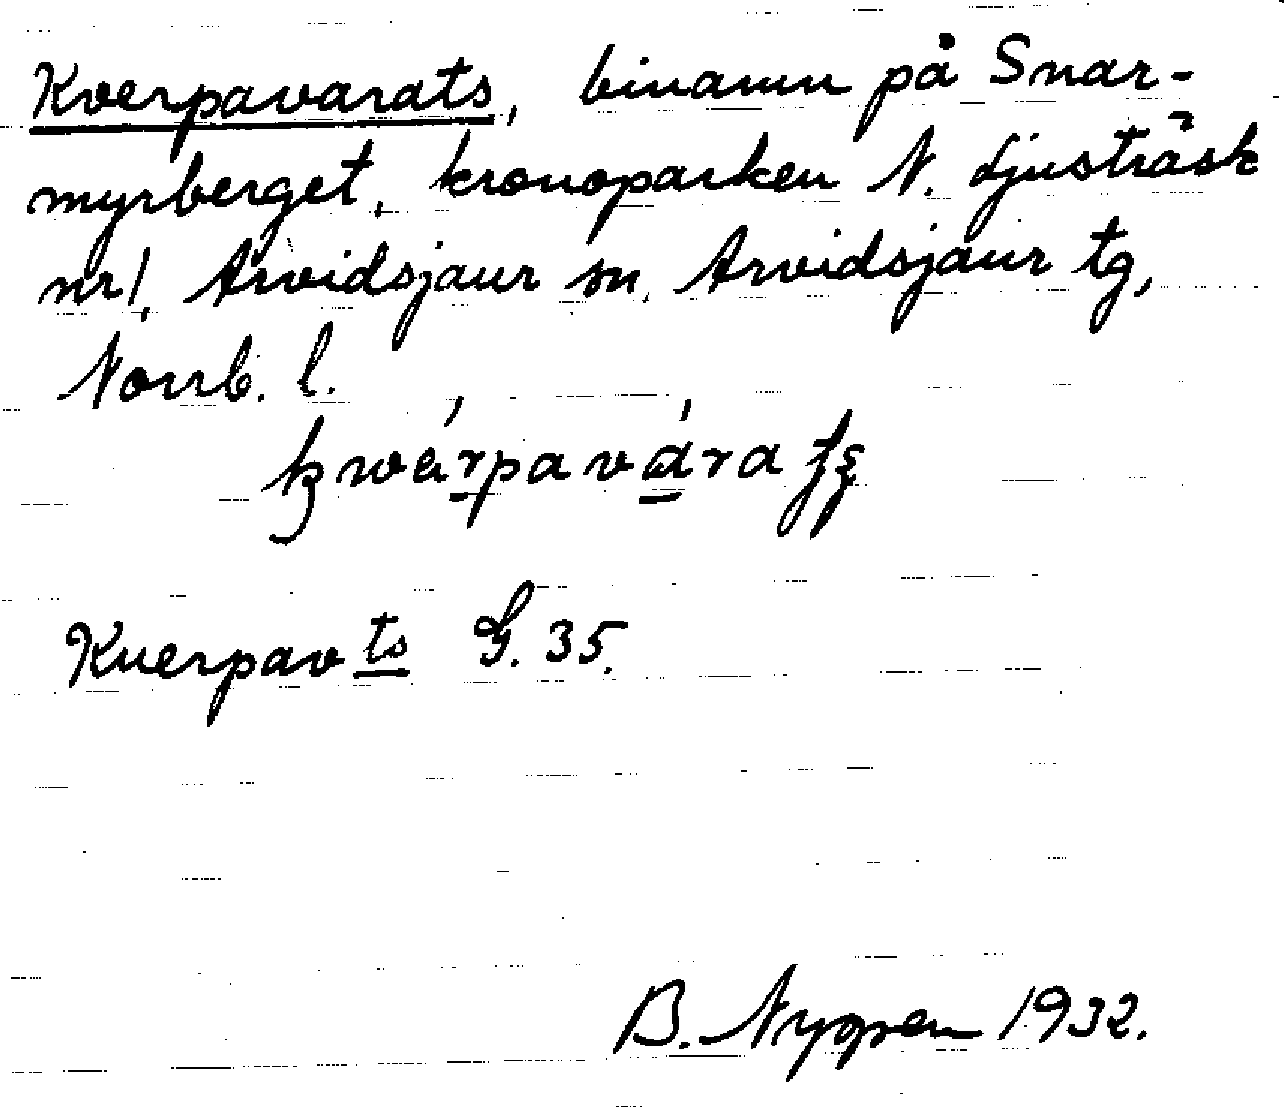 Kverpavarats, binamn på Snar-
myrberget, kronoparken N. Ljusträsk
nr 1, Arvidsjaur sn, Arvidsjaur tg,
Norrb. l.
Kuerpav ts G. 35.
B. Nyppen 1932.